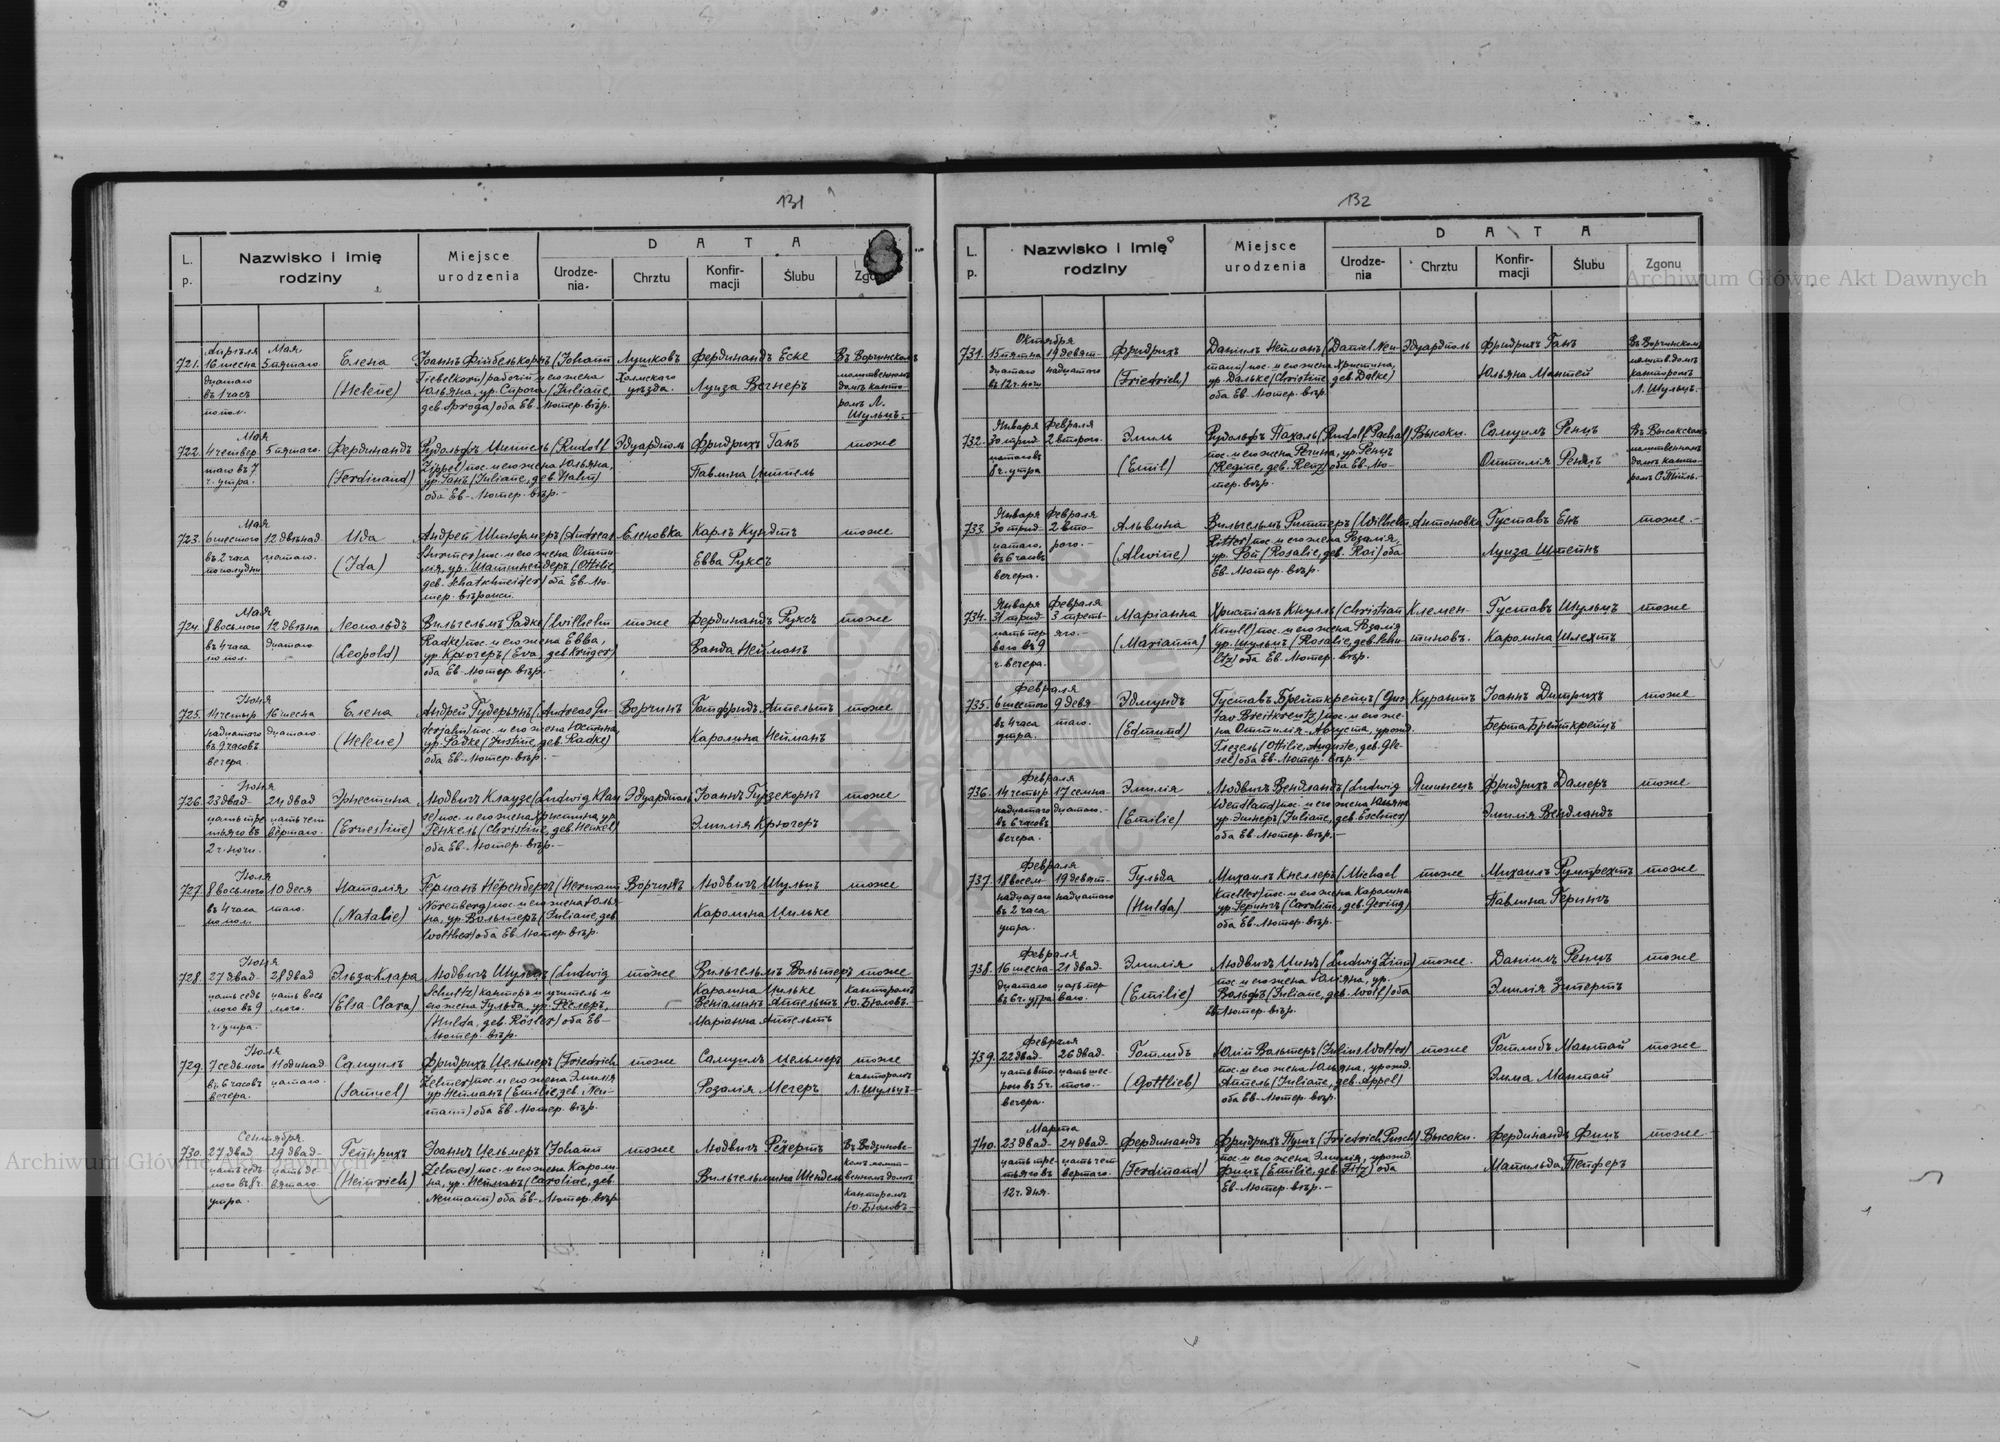 131
L. p.
Nazwisko i imię rodziny
Miejsce urodzenia
DATA
Urodze-nia.
Chrztu
Konfir-macji
Ślubu
721.
Апрѣля Мая
16 шесна 5 пятаго
дцатаго
въ 1 часъ
попол.
Елена
(Helene)
(Johann
Tiebelkorn) рабочій и его жена
Юльяна, ур. Спрога (Juliane,
оба Ев.-Лютер. вѣр.
Лушковъ
Холмскаго
уѣзда.
Фердинандъ Еске
Луиза Вегнеръ
Въ Ворчинскомъ
молитвенномъ
домѣ канто-
ромъ Л.
Шульцъ.-
722.
Мая
4 четвер 5 пятаго.
таго въ 7
ч. утра.
Фердинандъ
(Ferdinand)
Рудольфъ Циппель (Rudolf
Zippel) пос. и его жена Юльяна,
ур. Ганъ (Juliane, geb. Hahn)
оба Ев.-Лютер. вѣр.-
Эдуардполь
Фридрихъ Ганъ
Павлина Циппель
тоже
723.
Мая
6 шестого 12 двѣнад
въ 2 часа цатаго.
пополудни
Ида
(Ida)
Андрей Штюрмеръ (Andreas
Stürmer) пос. и его жена Отти-
лія, ур. Шатшнейдеръ (Ottilie
geb. Schatschneider) оба Ев.-Лю-
тер. вѣроисп.
Еленовка
Карлъ Кундтъ
Евва Руксъ
тоже
724.
Мая
8 восьмого 12 двѣна
въ 4 часа дцатаго
по пол.
Леопольдъ
(Leopold)
Вильгельмъ Радке (Wilhelm
Radke) пос. и его жена Евва,
ур. Крюгеръ (Eva, geb. Krüger)
оба Ев.-Лютер. вѣр.-
тоже
Фердинандъ Руксъ
Ванда Нейманъ
тоже
725.
Іюня
14 четыр 16 шесна
надцатаго дцатаго
въ 9 часовъ
вечера
Елена
(Helene)
Андрей Гудерьянъ (Andreas Gu-
derjahn) пос. и его жена Юстина,
ур. Радке (Justine, geb. Radke)
оба Ев.-Лютер. вѣр.-
Ворчинъ
Готфридъ Аппельтъ
Каролина Нейманъ
тоже
726.
Іюня
23 двад- 24 двад
цать тре цать чет
тьяго въ вертаго.
2 ч. ночи.
Эрнестина
(Ernestine)
Людвигъ Клаузе (Ludwig Klau
se) пос. и его жена Христина, ур.
Генкель (Christine, geb. Henkel)
оба Ев.-Лютер. вѣр.-
Эдуардполь
Іоаннъ Гурзекорнъ
Эмилія Крюгеръ
тоже
727.
Іюля
8 восьмого 10 деся
въ 4 часа таго.
по пол.
Наталія
(Natalie)
Германъ Нёренбергъ (Hermann
Nörenberg) пос. и его жена Юлья
на, ур. Вольтеръ (Juliane, geb.
Wolther) оба Ев.-Лютер. вѣр.
Ворчинъ
Людвигъ Шульцъ
Каролина Цильке
тоже
728.
Іюня
27 двад- 28 двад
цать седь цать вось
мого въ 9 мого.
ч. утра.
Эльза-Клара
(Elsa-Clara)
Людвигъ Шульцъ (Ludwig
Schultz) канторъ и учитель и
его жена Гульда, ур. Рёслеръ,
(Hulda, geb. Rösler) оба Ев-
Лютер. вѣр.
тоже
Вильгельмъ Вольтеръ
Каролина Цильке
Веніаминъ Аппельтъ
Маріанна Аппельтъ
тоже
канторомъ
Ю. Бюловъ.-
729.
Іюля
7 седьмого 11 одинад
въ 6 часовъ цатаго.
вечера.
Самуилъ
(Samuel)
Фридрихъ Цельмеръ (Friedrich
Zelmer) пос. и его жена Эмилія
ур. Нейманъ (Emilie, geb. Neu-
mann) оба Ев.-Лютер. вѣр.
тоже
Самуилъ Цельмеръ
Розалія Мегеръ
тоже
канторомъ
Л. Шульцъ-
730.
Сентября
27 двад 29 двад-
цать седь цать де
мого въ 8 ч. вятаго.
утра.
Гейнрихъ
(Heinrich)
Іоаннъ Цельмеръ (Johann
Zelmer) пос. и его жена Кароли-
на, ур. Нейманъ (Caroline, geb.
Neumann) оба Ев-Лютер. вѣр
тоже
Людвигъ Рейхертъ
Вильгельмина Шендель
венномъ домѣ
канторомъ
Ю. Бюловъ.-
132
L. p.
Nazwisko i imię rodziny
Miejsce urodzenia
DATA
Urodze-nia
Chrztu
Konfir-macji
Ślubu
Zgonu
731.
Октября
15 пятна 19 девят-
дцатаго надцатаго
въ 12 ч. ночи
Фридрихъ
(Friedrich)
Даніилъ Нейманъ (Daniel Neu-
mann) пос. и его жена Христина,
ур. Дальке (Christine, geb. Dalke)
оба Ев.-Лютер. вѣр.
Эдуардполь
Фридрихъ Ганъ
Юльяна Мантей
Въ Ворчинском
молитв. домѣ
канторомъ
Л. Шульцъ.
732.
Января Февраля
30 трид- 2 второго.
цатаго въ
8 ч. утра
Эмиль
(Emil)
Рудольфъ Пахаль (Rudolf Pachal)
пос. и его жена Регина, ур. Ренцъ
(Regine, geb. Renz) оба Ев.-Лю-
тер. вѣр.
Высоки.
Самуилъ Ренцъ
Оттилія Ренцъ
Въ Высокскомъ
молитвенномъ
домѣ канто-
733.
Января Февраля
30 трид- 2 вто-
цатаго, рого.
въ 6 часовъ
вечера.
Альвина
(Alwine)
Вильгельмъ Риттеръ (Wilhelm
Ritter) пос. и его жена Розалія,
ур. Рой (Rosalie, geb. Roi) оба
Ев.-Лютер. вѣр.
Антоновка
Густавъ Енъ
Луиза Штейнъ
тоже.-
734.
Января Февраля
31 трид- 3 треть-
цать пер яго.
вого въ 9
ч. вечера.
Маріанна
(Marianna)
Христіанъ Кнулль (Christian
Knull) пос. и его жена Розалія
ур. Шульцъ (Rosalie, geb. Schu-
ltz) оба Ев.-Лютер. вѣр.
Клемен-
тиновъ.
Густавъ Шульцъ
Каролина Шлехтъ
тоже
735.
Февраля
6 шестого 9 девя-
въ 4 часа таго.
утра.
Эдмундъ
(Edmund)
Густавъ Брейткрейцъ (Gus-
tav Breitkreutz) пос. и его же-
на Оттилія-Августа, урожд.
Глезель (Ottilie, Auguste, geb. Gle-
sel) оба Ев.-Лютер. вѣр.-
Курантъ
Іоаннъ Дитрихъ
Берта Брейткрейцъ
тоже
736.
Февраля
14 четыр 17 семна-
надцатаго дцатаго.
въ 6 часовъ
вечера.
Эмилія
(Emilie)
Людвигъ Вендландъ (Ludwig
Wendland) пос. и его жена Юльяна
ур. Эшнеръ (Juliane, geb. Eschner)
оба Ев.-Лютер. вѣр.-
Яшинецъ
Фридрихъ Дамеръ
Эмилія Вендландъ
тоже
737.
Февраля
18 восем 19 девят-
надцатаго надцатаго
въ 2 часа
утра.
Гульда
(Hulda)
Михаилъ Кнеллеръ (Michael
Kneller) пос. и его жена Каролина
ур. Герингъ (Caroline, geb. Gering)
оба Ев.-Лютер. вѣр.
тоже
Михаилъ Румпрехтъ
Павлина Герингъ
тоже
738.
Февраля
16 шесна- 21 двад-
дцатаго цать пер
въ 6 ч. утра ваго.
Эмилія
(Emilie)
Людвигъ Цинъ (Ludwig Zinn)
пос. и его жена Юліяна, ур.
Вольфъ (Juliane, geb. Wolf) оба
Ев-Лютер. вѣр.
тоже.
Даніилъ Ренцъ
Эмилія Зитертъ
тоже
739.
Февраля
22 двад- 26 двад-
цать вто- цать шес-
рого въ 5 ч. того.-
вечера.
Готлибъ
(Gottlieb)
Юлій Вольтеръ (Julius Wolter)
пос. и его жена Юльяна, урожд.
Аппель (Juliane, geb. Appel)
оба Ев.-Лютер. вѣр.
тоже
Готлибъ Мантай
Эмма Мантай
тоже
740.
Марта
23 двад- 24 двад-
цать тре- цать чет
тьяго въ вертаго.
12 ч. дня.
Фердинандъ
(Ferdinand)
Фридрихъ Пушъ (Friedrich Pusch)
пос. и его жена Эмилія, урожд.
Фицъ (Emilie, geb. Fitz) оба
Ев-Лютер. вѣр.-
Высоки.
Фердинандъ Фицъ
Матильда Тепферъ
тоже
Archiwum Główne Akt Dawnych
Archiwum Główne Akt Dawnych